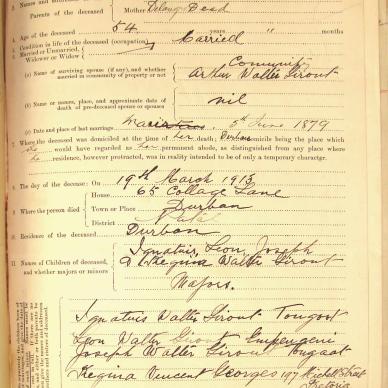 Parents of the deceased Mother Dead
4. Age of the deceased 54 years " months
5. Condition in life of the deceased (occupation)
Married or Unmarried, Widower or Widow } Married
(a) Name of surviving spouse (if any), and whether married in community of property or not { Community
Arthur Walter Sirout
(b) Name or names, place, and approximate date of death of pre-deceased spouse or spouses { nil
(c) Date and place of last marriage 5th June 1879
7. Where the deceased was domiciled at the time of her death, Durban omitile being the place which
she would regarded as her permanent abode, as distinguished from any place where
he residence, however protracted, was in reality intended to be of only a temporary character.
8. The day of the decease: On 19th March 1913
9. Where the person died { House 65 College Lane
Town or Place Durban
District Natal
10. Residence of the deceased Durban
11. Names of Children of deceased, and whether majors or minors { Ignatius, Leon, Joseph
& Regina Walter Sirout
Majors.
Ignatius Walter Sirout Tongaat
Leon Walter Sirout Empangeni
Joseph Walter Sirout Tongaat
Regina Vincent Georges 197 Michell Street
Pretoria